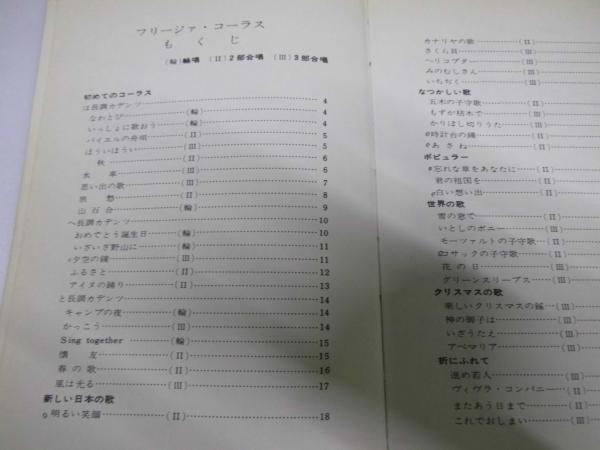 フリージァ・コーラス
も く じ
(輪)輪唱 (II)2部合唱 (III)3部合唱
初めてのコーラス
は長調カデンツ………………………… 4
なわとび…………(輪)………… 4
いっしょに歌おう……(輪)………… 4
バイエルの舟唄………(II)………… 5
ほういほうい…………(III)………… 5
秋……………(II)………… 6
水 車…………(III)………… 6
思い出の歌…………(III)………… 7
旅 愁…………(II)………… 8
山 石 合…………(輪)………… 9
ヘ長調カデンツ………………………… 10
おめでとう誕生日……(輪)………… 10
いざいざ野山に………(輪)………… 11
夕空の鐘…………(III)………… 11
ふるさと…………(II)………… 12
アイヌの踊り…………(II)………… 13
と長調カデンツ………………………… 14
キャンプの夜…………(輪)………… 14
かっこう…………(III)………… 14
Sing together …………(輪)………… 15
懐 友…………(II)………… 15
春 の 歌…………(II)………… 16
風は光る…………(III)………… 17
新しい日本の歌
明るい笑顔…………(II)………… 18
カナリヤの歌…………(II)
さくら貝…………(III)
ヘリコプター…………(III)
みのむしさん…………(III)
いちぢく…………(III)
なつかしい歌
五木の子守歌…………(II)
もずが枯木で…………(II)
かりぼし切りうた……(II)
時計台の鐘…………(II)
あ さ ね…………(II)
ポピュラー
忘れな草をあなたに……(II)
君の祖国を…………(II)
白い想い出…………(II)
世界の歌
雪の窓で…………(II)
いとしのボニー………(III)
モーツァルトの子守歌…(II)
サックの子守歌………(II)
花 の 日…………(III)
グリーンスリーブス……(II)
クリスマスの歌
楽しいクリスマスの鐘…(III)
神の御子は…………(III)
いざうたえ…………(III)
アベマリア…………(III)
折にふれて
進め若人…………(III)
ヴィヴラ・コンパニー…(II)
またあう日まで………(II)
これでおしまい………(III)